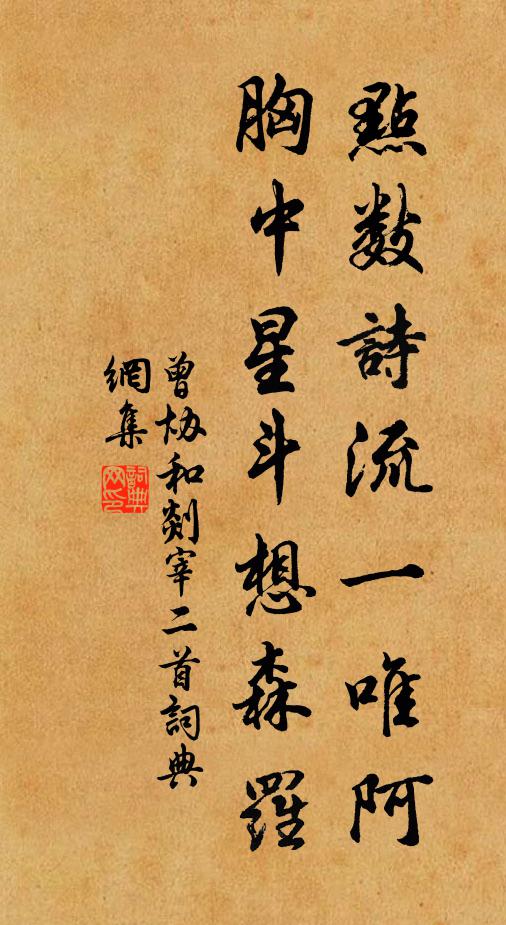 點數詩流一唯阿
胸中星斗想森羅
曾協和剡宰二首詞典
網集
詞典
网印